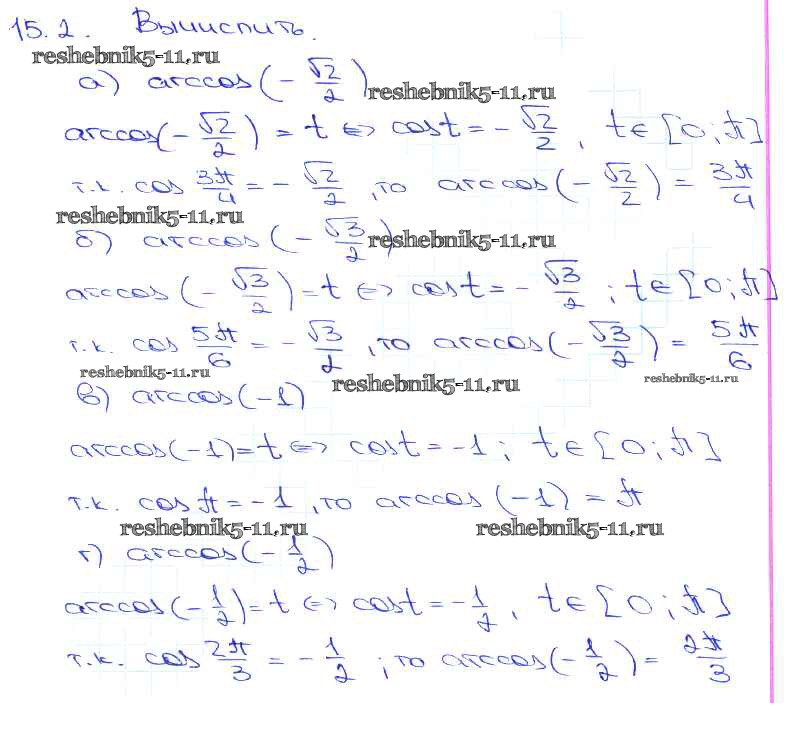 15.2. Вычислить.
reshebnik5-11.ru
а) arccos(-√2/2)
reshebnik5-11.ru
arccos(-√2/2) = t ⇔ cos t = -√2/2, t ∈ [0; π]
т.к. cos 3π/4 = -√2/2, то arccos(-√2/2) = 3π/4
reshebnik5-11.ru
б) arccos(-√3/2)
reshebnik5-11.ru
arccos(-√3/2) = t ⇔ cos t = -√3/2; t ∈ [0; π]
т.к. cos 5π/6 = -√3/2, то arccos(-√3/2) = 5π/6
reshebnik5-11.ru
reshebnik5-11.ru
reshebnik5-11.ru
в) arccos(-1)
arccos(-1) = t ⇔ cos t = -1; t ∈ [0; π]
т.к. cos π = -1, то arccos(-1) = π
reshebnik5-11.ru
reshebnik5-11.ru
г) arccos(-1/2)
arccos(-1/2) = t ⇔ cos t = -1/2, t ∈ [0; π]
т.к. cos 2π/3 = -1/2; то arccos(-1/2) = 2π/3